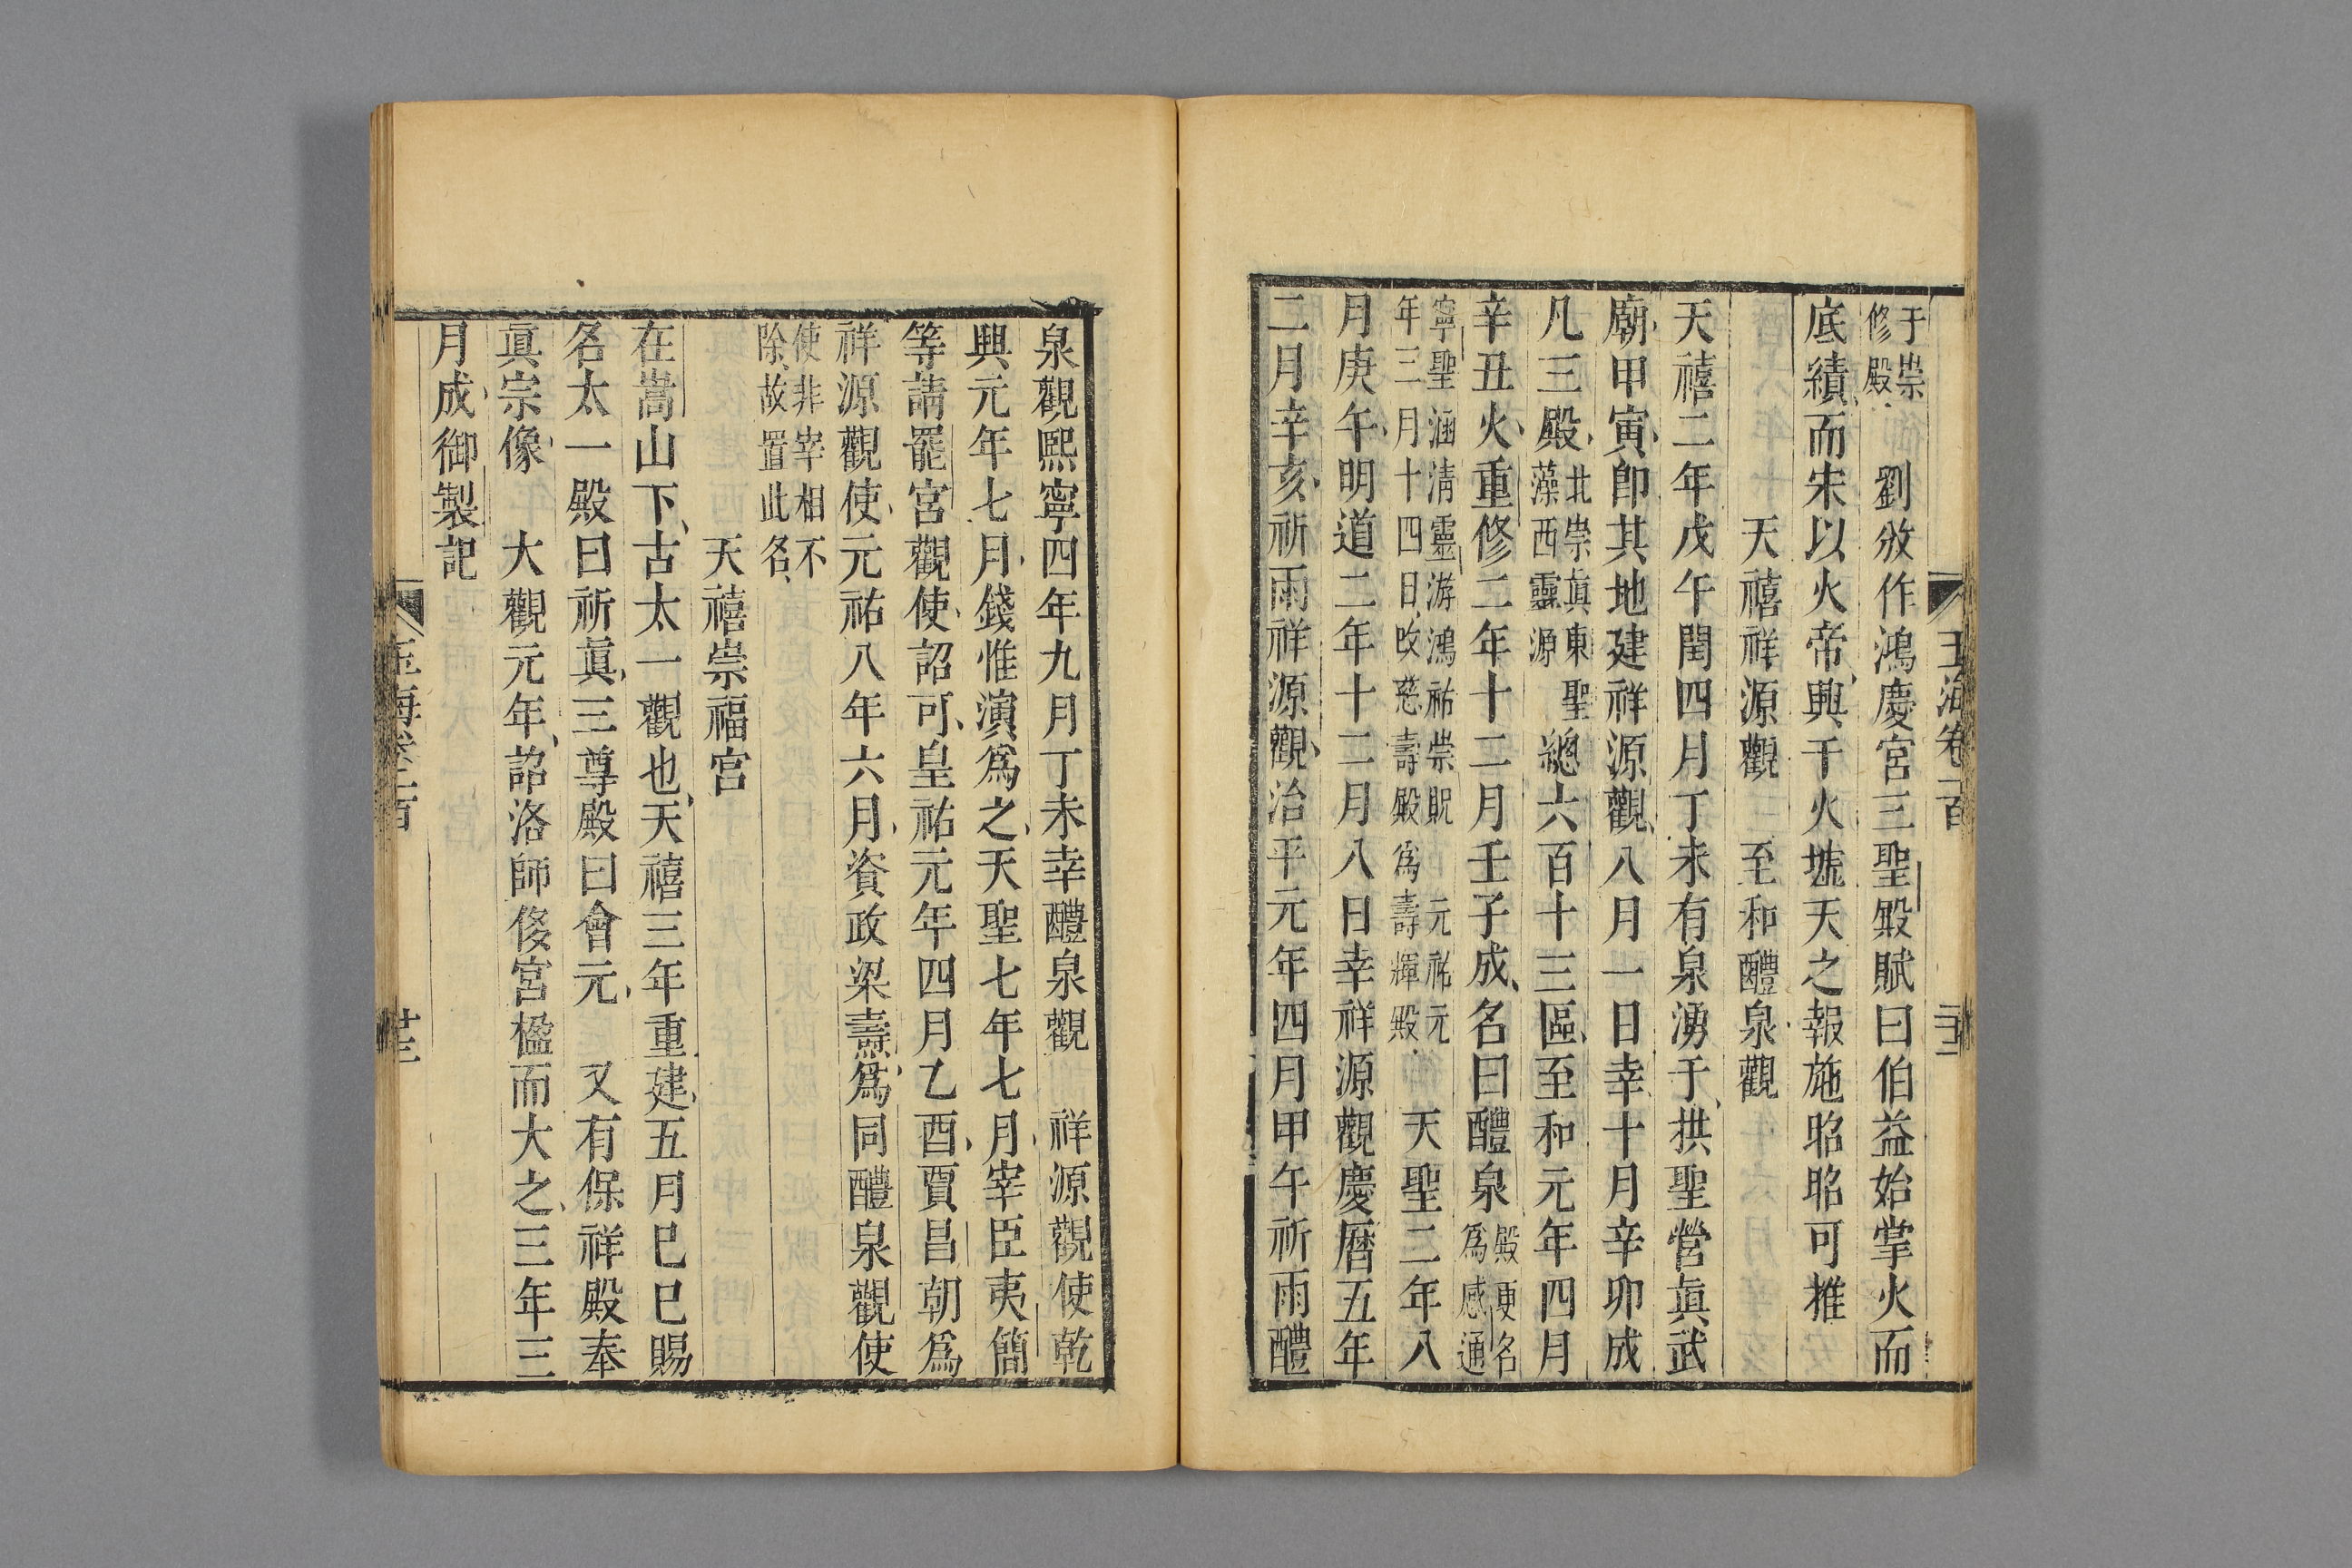 玉海卷一百
于崇修殿　劉攽作鴻慶宮三聖殿賦曰伯益始掌火而
底績而宋以火帝興于火墟天之報施昭昭可推
天禧祥源觀　至和醴泉觀
天禧二年戊午閏四月丁未有泉湧于拱聖營眞武
廟甲寅卽其地建祥源觀八月一日幸十月辛卯成
凡三殿北崇眞東聖藻西靈源總六百十三區至和元年四月
辛丑火重修二年十二月壬子成名曰醴泉殿更名爲感通
寧聖涵淸靈游鴻祐崇貺元祐元年三月十四日改慈壽殿爲壽輝殿　天聖二年八
月庚午明道二年十二月八日幸祥源觀慶曆五年
二月辛亥祈雨祥源觀治平元年四月甲午祈雨醴
泉觀熙寧四年九月丁未幸醴泉觀　祥源觀使乾
興元年七月錢惟演爲之天聖七年七月宰臣夷簡
等請罷宮觀使詔可皇祐元年四月乙酉賈昌朝爲
祥源觀使元祐八年六月資政梁燾爲同醴泉觀使
使非宰相不除故置此名
天禧崇福宮
在嵩山下古太一觀也天禧三年重建五月巳巳賜
名太一殿曰祈眞三尊殿曰會元　又有保祥殿奉
眞宗像　大觀元年詔洛師俢宮楹而大之三年三
月成御製記
玉海卷一百